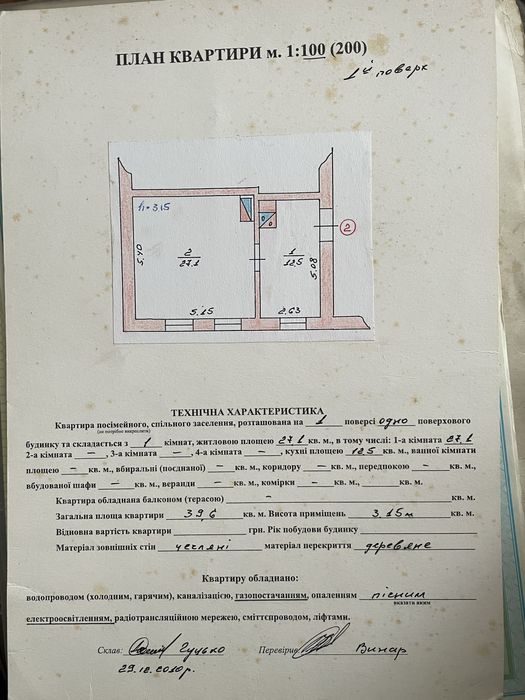 ПЛАН КВАРТИРИ м. 1:100 (200)
1й поверх
h=3,15
2
27.1
5.40
5.15
1
12.5
5.08
2.63
2
ТЕХНІЧНА ХАРАКТЕРИСТИКА
Квартира посімейного, спільного заселення, розташована на 1 поверсі одно поверхового
(не потрібне викреслити)
будинку та складається з 1 кімнат, житловою площею 27.1 кв. м., в тому числі: 1-а кімната 27.1
2-а кімната – , 3-а кімната – , 4-а кімната – , кухні площею 12.5 кв. м., ванної кімнати
площею – кв. м., вбиральні (поєднаної) – кв. м., коридору – кв. м., передпокою – кв. м.,
вбудованої шафи – кв. м., веранди – кв. м., комірки – кв. м., кв. м.
Квартира обладнана балконом (терасою) – кв. м.
Загальна площа квартири 39,6 кв. м. Висота приміщень 3.15м кв. м.
Відновна вартість квартири грн. Рік побудови будинку
Матеріал зовнішніх стін цегляні матеріал перекриття деревяне
Квартиру обладнано:
водопроводом (холодним, гарячим), каналізацією, газопостачанням, опаленням пічним
вказати яким
електроосвітленням, радіотрансляційною мережею, сміттєпроводом, ліфтами.
Склав: Гуцько Перевірив: Винар
29.12.2010р.